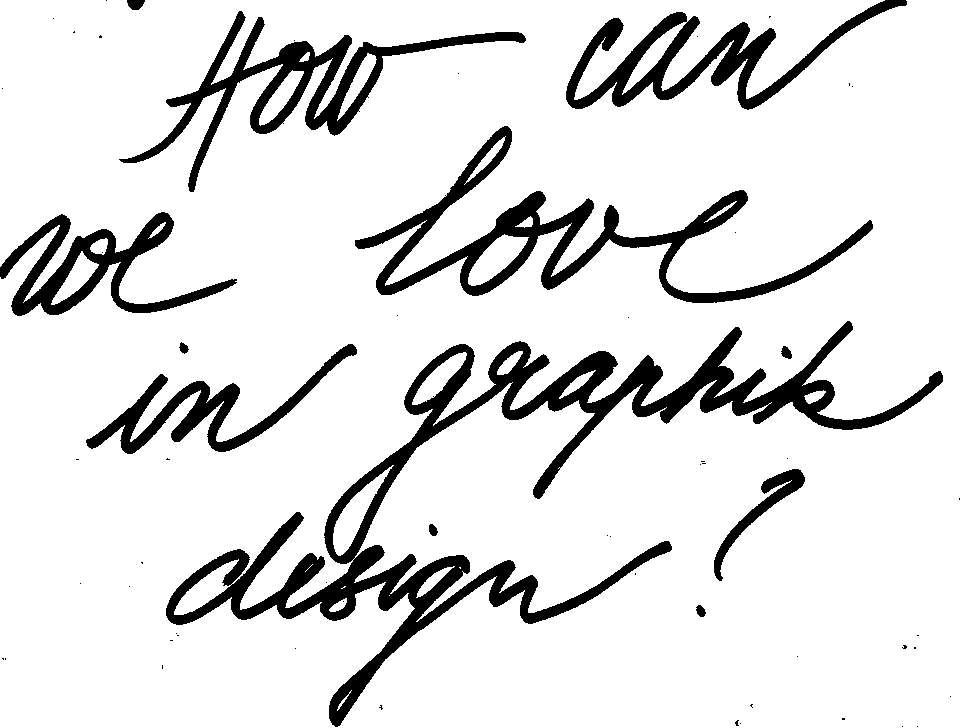 How can
we love
in graphik
design?